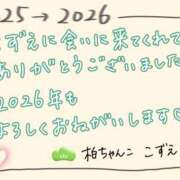 25→2026
こずえに会いに来てくれて
ありがとうございました
2026年も
よろしくおねがいします♡
柏ちゃんこ こずえ